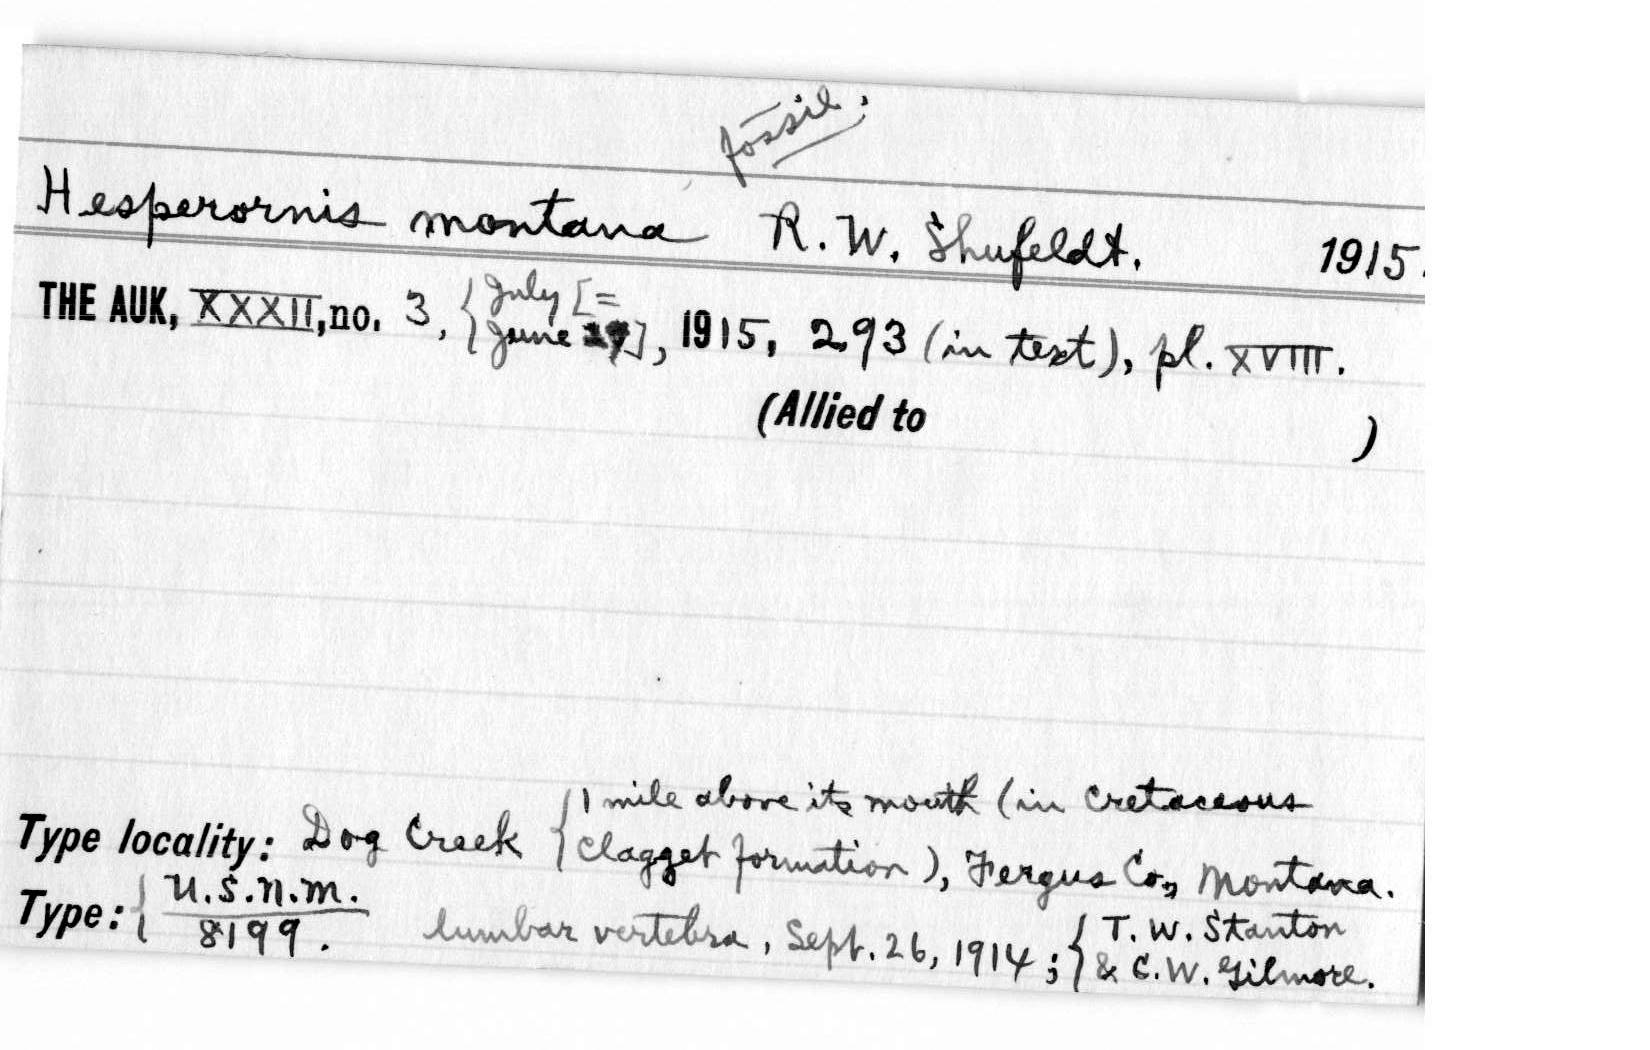 fossil.
Hesperornis montana R. W. Shufeldt. 1915.
THE AUK, XXXII, no. 3, { July [=
June ], 1915, 293 (in text), pl. XVIII.
(Allied to )
1 mile above its mouth (in Cretaceous
Type locality: Dog Creek { Clagget formation), Fergus Co., Montana.
Type: { U.S.N.M.
8199. lumbar vertebra, Sept. 26, 1914; { T. W. Stanton
& C. W. Gilmore.